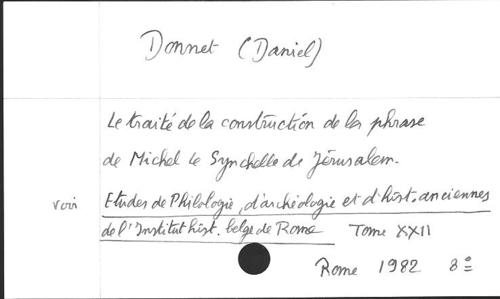 Donnet (Daniel)
Le traité de la construction de la phrase
de Michel le Syncelle de Jérusalem.
voir Etudes de Philologie, d'archéologie et d'hist. anciennes
de l'Institut hist. belge de Rome Tome XXII
Rome 1982 8°